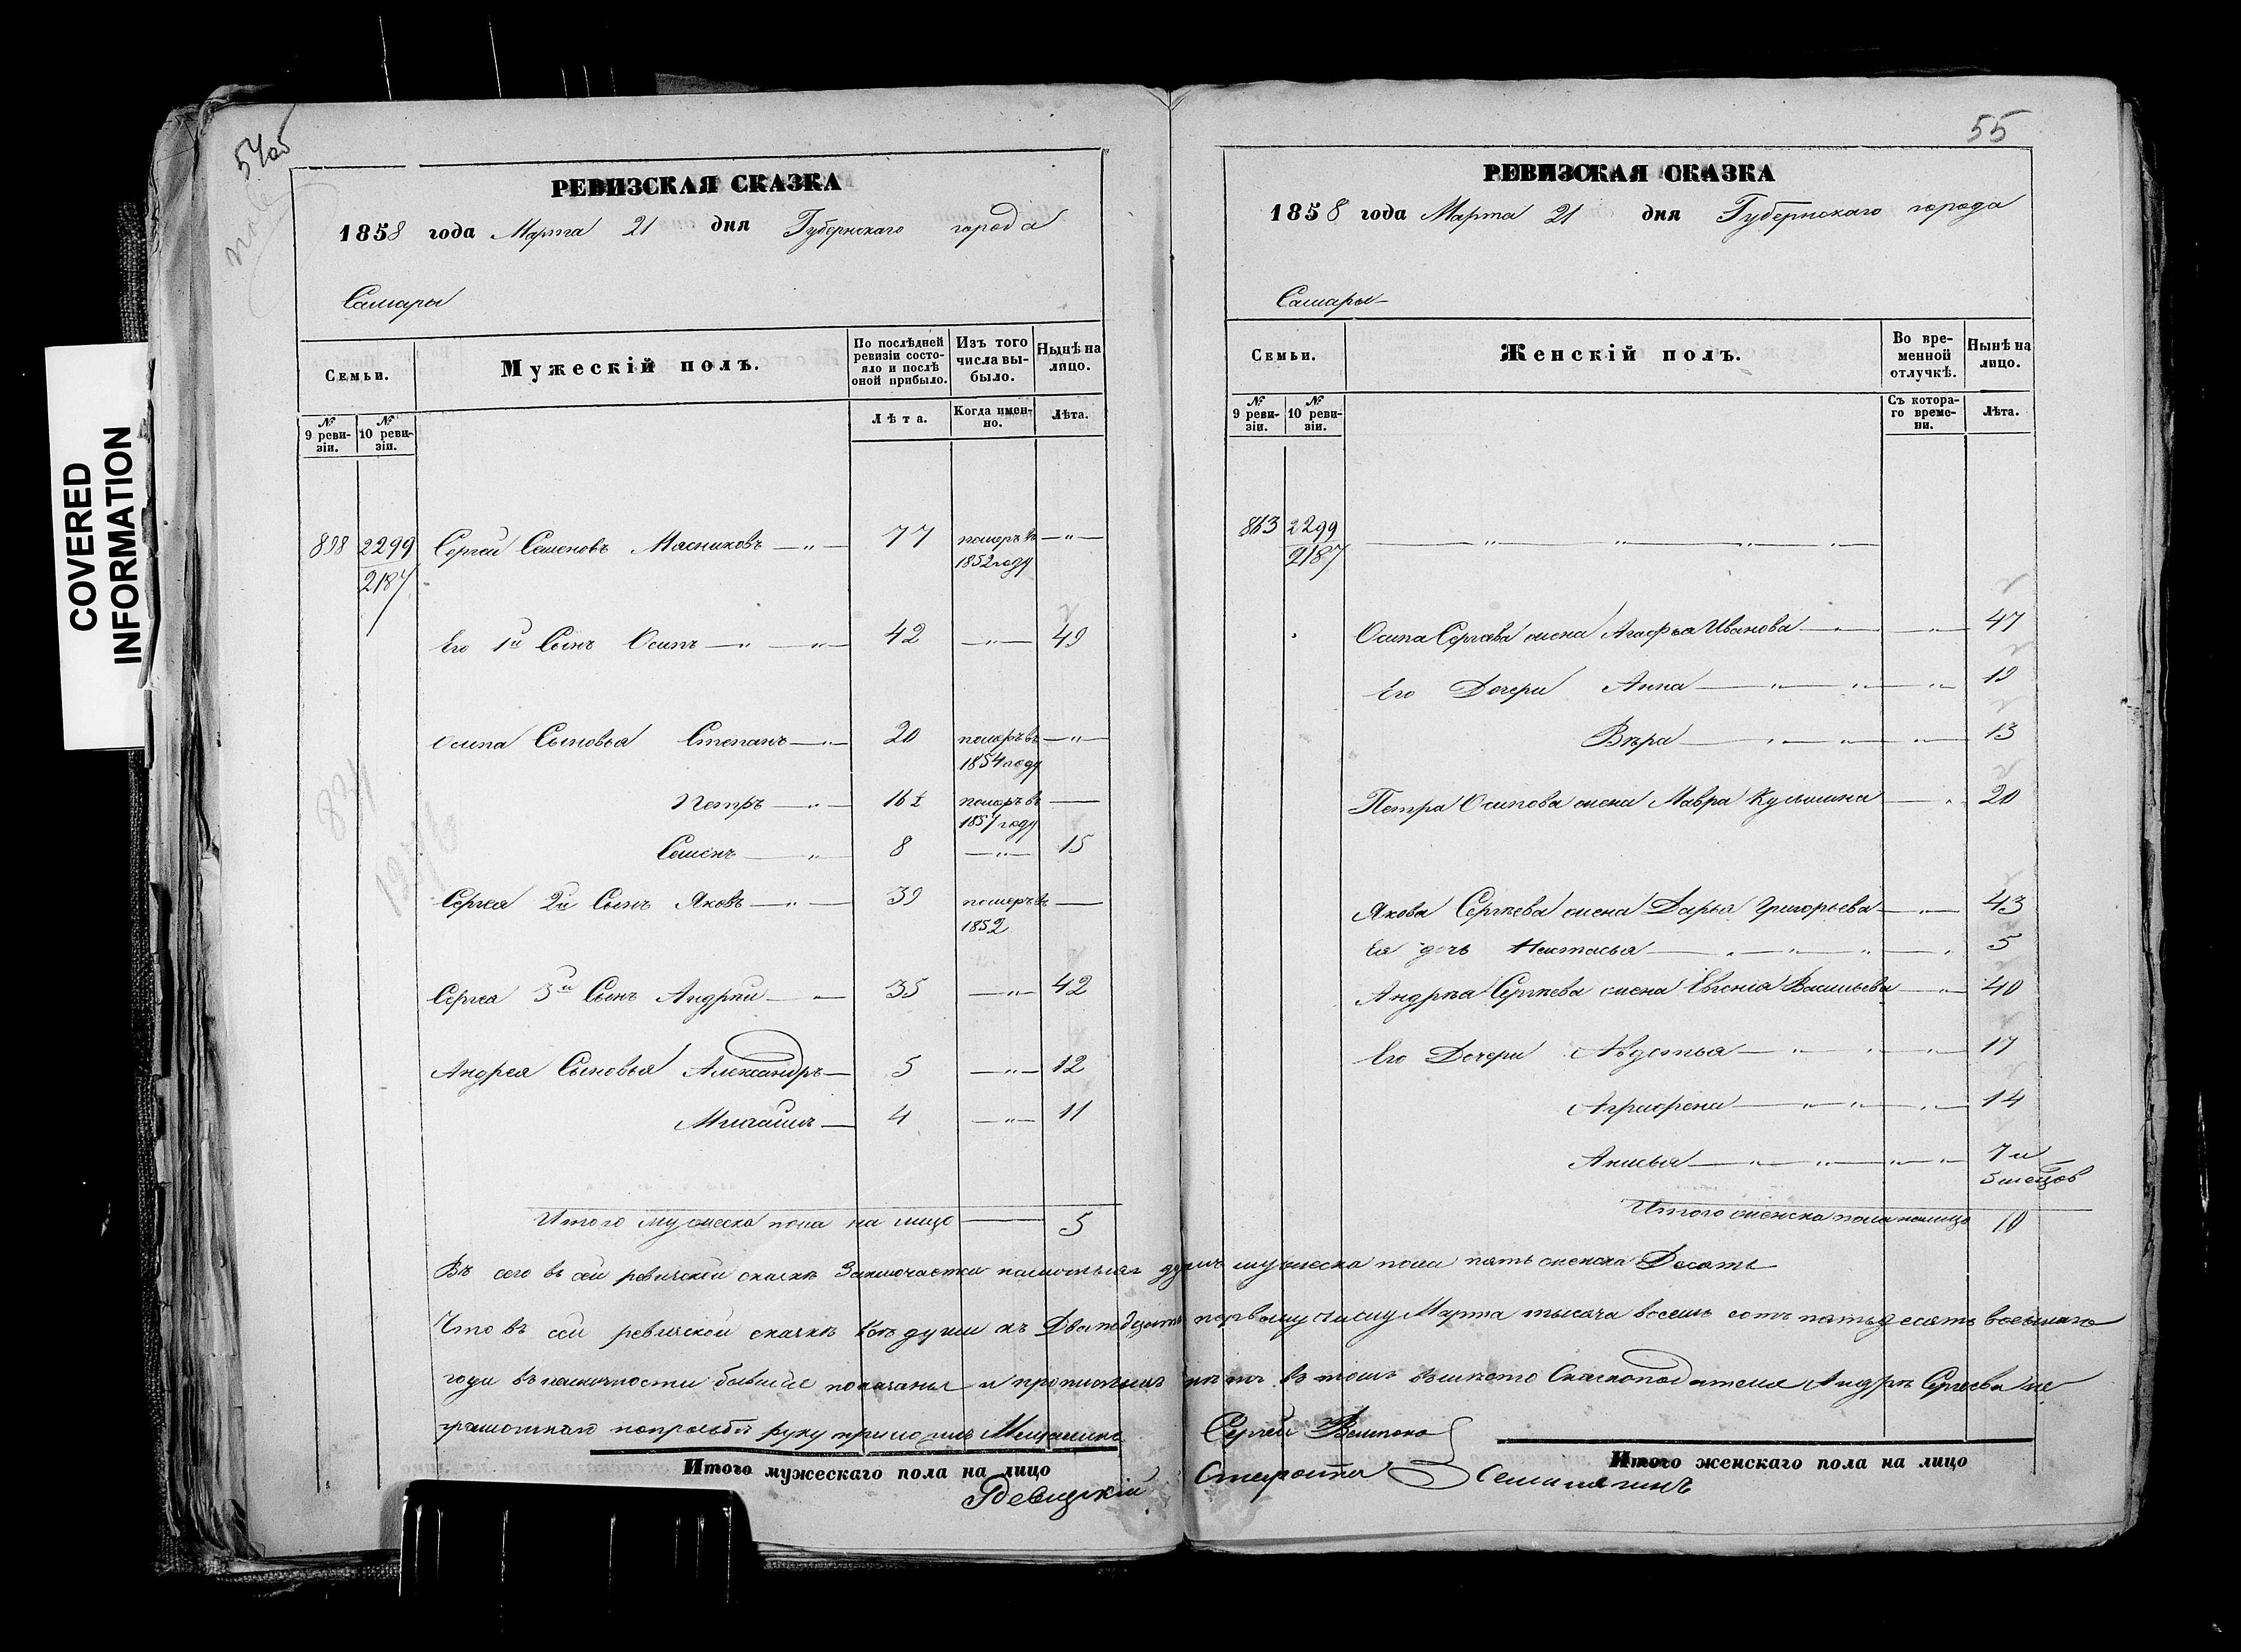 COVERED
INFORMATION
54об
РЕВИЗСКАЯ СКАЗКА
1858 года Марта 21 дня Губернскаго города
Самары
Семьи.
Мужескiй полъ.
По послѣдней ревизiи состояло и послѣ оной прибыло.
Изъ того числа выбыло.
Нынѣ на лицо.
№ 9 ревизiи.
№ 10 ревизiи.
Лѣта.
Когда именно.
Лѣта.
898 2299 Сергей Семеновъ Масниковъ — „ — 77 померъ въ — „ —
2187 1852 году
Его 1й Сынъ Осипъ — „ — „ — 42 — „ — 49
Осипа Сыновья Степанъ — „ — 20 померъ въ — „ —
1854 году
Петръ — „ — 16½ померъ въ —
1857 году
Семенъ — „ — 8 — „ — 15
Сергея 2й Сынъ Яковъ — „ — 39 померъ въ —
1852
Сергея 3й Сынъ Андрѣй — „ — 35 — „ — 42
Андрея Сыновья Александръ — 5 — „ — 12
Михаилъ — 4 — „ — 11
Итого мужеска пола на лицо — 5
55
РЕВИЗСКАЯ СКАЗКА
1858 года Марта 21 дня Губернскаго города
Самары
Семьи.
Женскiй полъ.
Во временной отлучкѣ.
Нынѣ на лицо.
№ 9 ревизiи.
№ 10 ревизiи.
Съ котораго времени.
Лѣта.
863 2299 — „ — „ — „ — „ —
2187
Осипа Сергѣева жена Агафья Иванова — „ — „ — 47
Его Дочери Анна — „ — „ — „ — 19
Вѣра — „ — „ — „ — 13
Петра Осипова жена Мавра Кузьмина — „ 20
Якова Сергѣева жена Дарья Григорьева — „ — 43
Ея дочь Настасья — „ — „ — „ — „ 5
Андрѣа Сергѣева жена Евгенiя Васильева — „ — 40
Его Дочери Авдотья — „ — „ — „ — 17
Аграфена — „ — „ — „ — 14
Анисья — „ — „ — „ — „ — 7 и
5 мѣцов
Итого женска пола на лицо 10
Въ сего въ сей ревизской сказкѣ Заключается налично душъ мужеска пола пять женска Десять
Что въ сей ревизской сказкѣ всѣ души къ Двадцать первому числу Марта тысяча восемь сотъ пятьдесятъ восьмаго
года въ наличности бывшие показаны и прописныхъ нѣтъ въ томъ вместо Сказкоподателя Андрѣ Сергеева не
грамотнаго по прозьбѣ руку приложилъ Мещанинъ Сергей
Итого мужескаго пола на лицо
Итого женскаго пола на лицо
Ревизскiй Староста